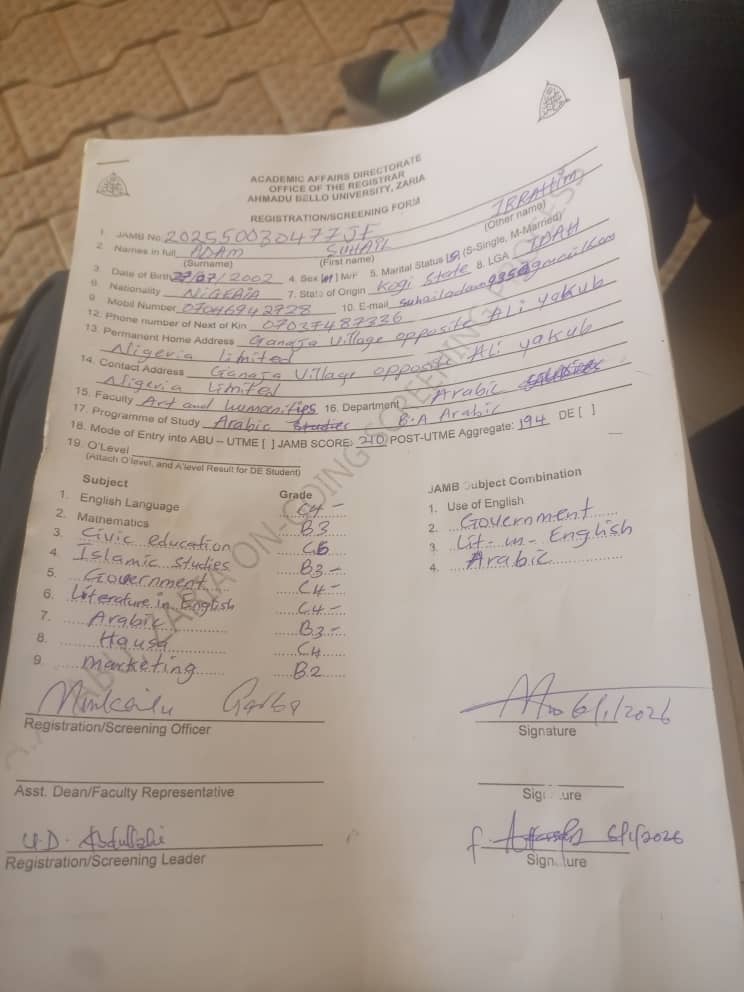 ACADEMIC AFFAIRS DIRECTORATE
OFFICE OF THE REGISTRAR
AHMADU BELLO UNIVERSITY, ZARIA
REGISTRATION/SCREENING FORM
1. JAMB No. 202550030477JF
2. Names in full ADAM SUHAIL IBRAHIM
(Surname) (First name) (Other name)
3. Date of Birth 27/07/2002 4. Sex [M] M/F 5. Marital Status [S] (S-Single, M-Married)
6. Nationality NIGERIA 7. State of Origin Kogi State 8. LGA IDAH
9. Mobil Number 07046942728 10. E-mail suhailadam9350@gmail.com
12. Phone number of Next of Kin 07037487336
13. Permanent Home Address Ganaja Village opposite Ali yakub
Nigeria limited
14. Contact Address Ganaja Village opposite Ali yakub
Nigeria Limited
15. Faculty Art and humanities 16. Department Arabic
17. Programme of Study Arabic Studies B.A Arabic
18. Mode of Entry into ABU – UTME [ ] JAMB SCORE: 210 POST-UTME Aggregate: 194 DE [ ]
19. O'Level
(Attach O'level, and A'level Result for DE Student)
Subject Grade
1. English Language C4 -
2. Mathematics B3
3. Civic education C6
4. Islamic studies B3 -
5. Government C4 -
6. Literature in English C4 -
7. Arabic B3 -
8. Hausa C4
9. marketing B2
JAMB Subject Combination
1. Use of English
2. Government
3. Lit-in-English
4. Arabic
Garba
Registration/Screening Officer
6/1/2026
Signature
Asst. Dean/Faculty Representative
Signature
U.D. Abdullahi
Registration/Screening Leader
6/1/2026
Signature
ABU, ZARIA ON-GOING SCREENING EXERCISE